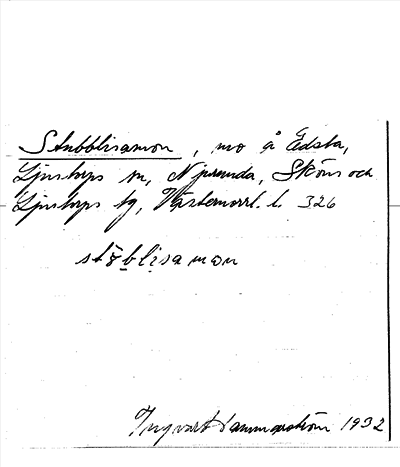 Stubblisamon, mo å Edsta,
Ljustorps sn, Njurunda, Sköns och
Ljustorps tg, Västernorrl. l. 326
stöblisamon
Ingvart Hammarström 1932